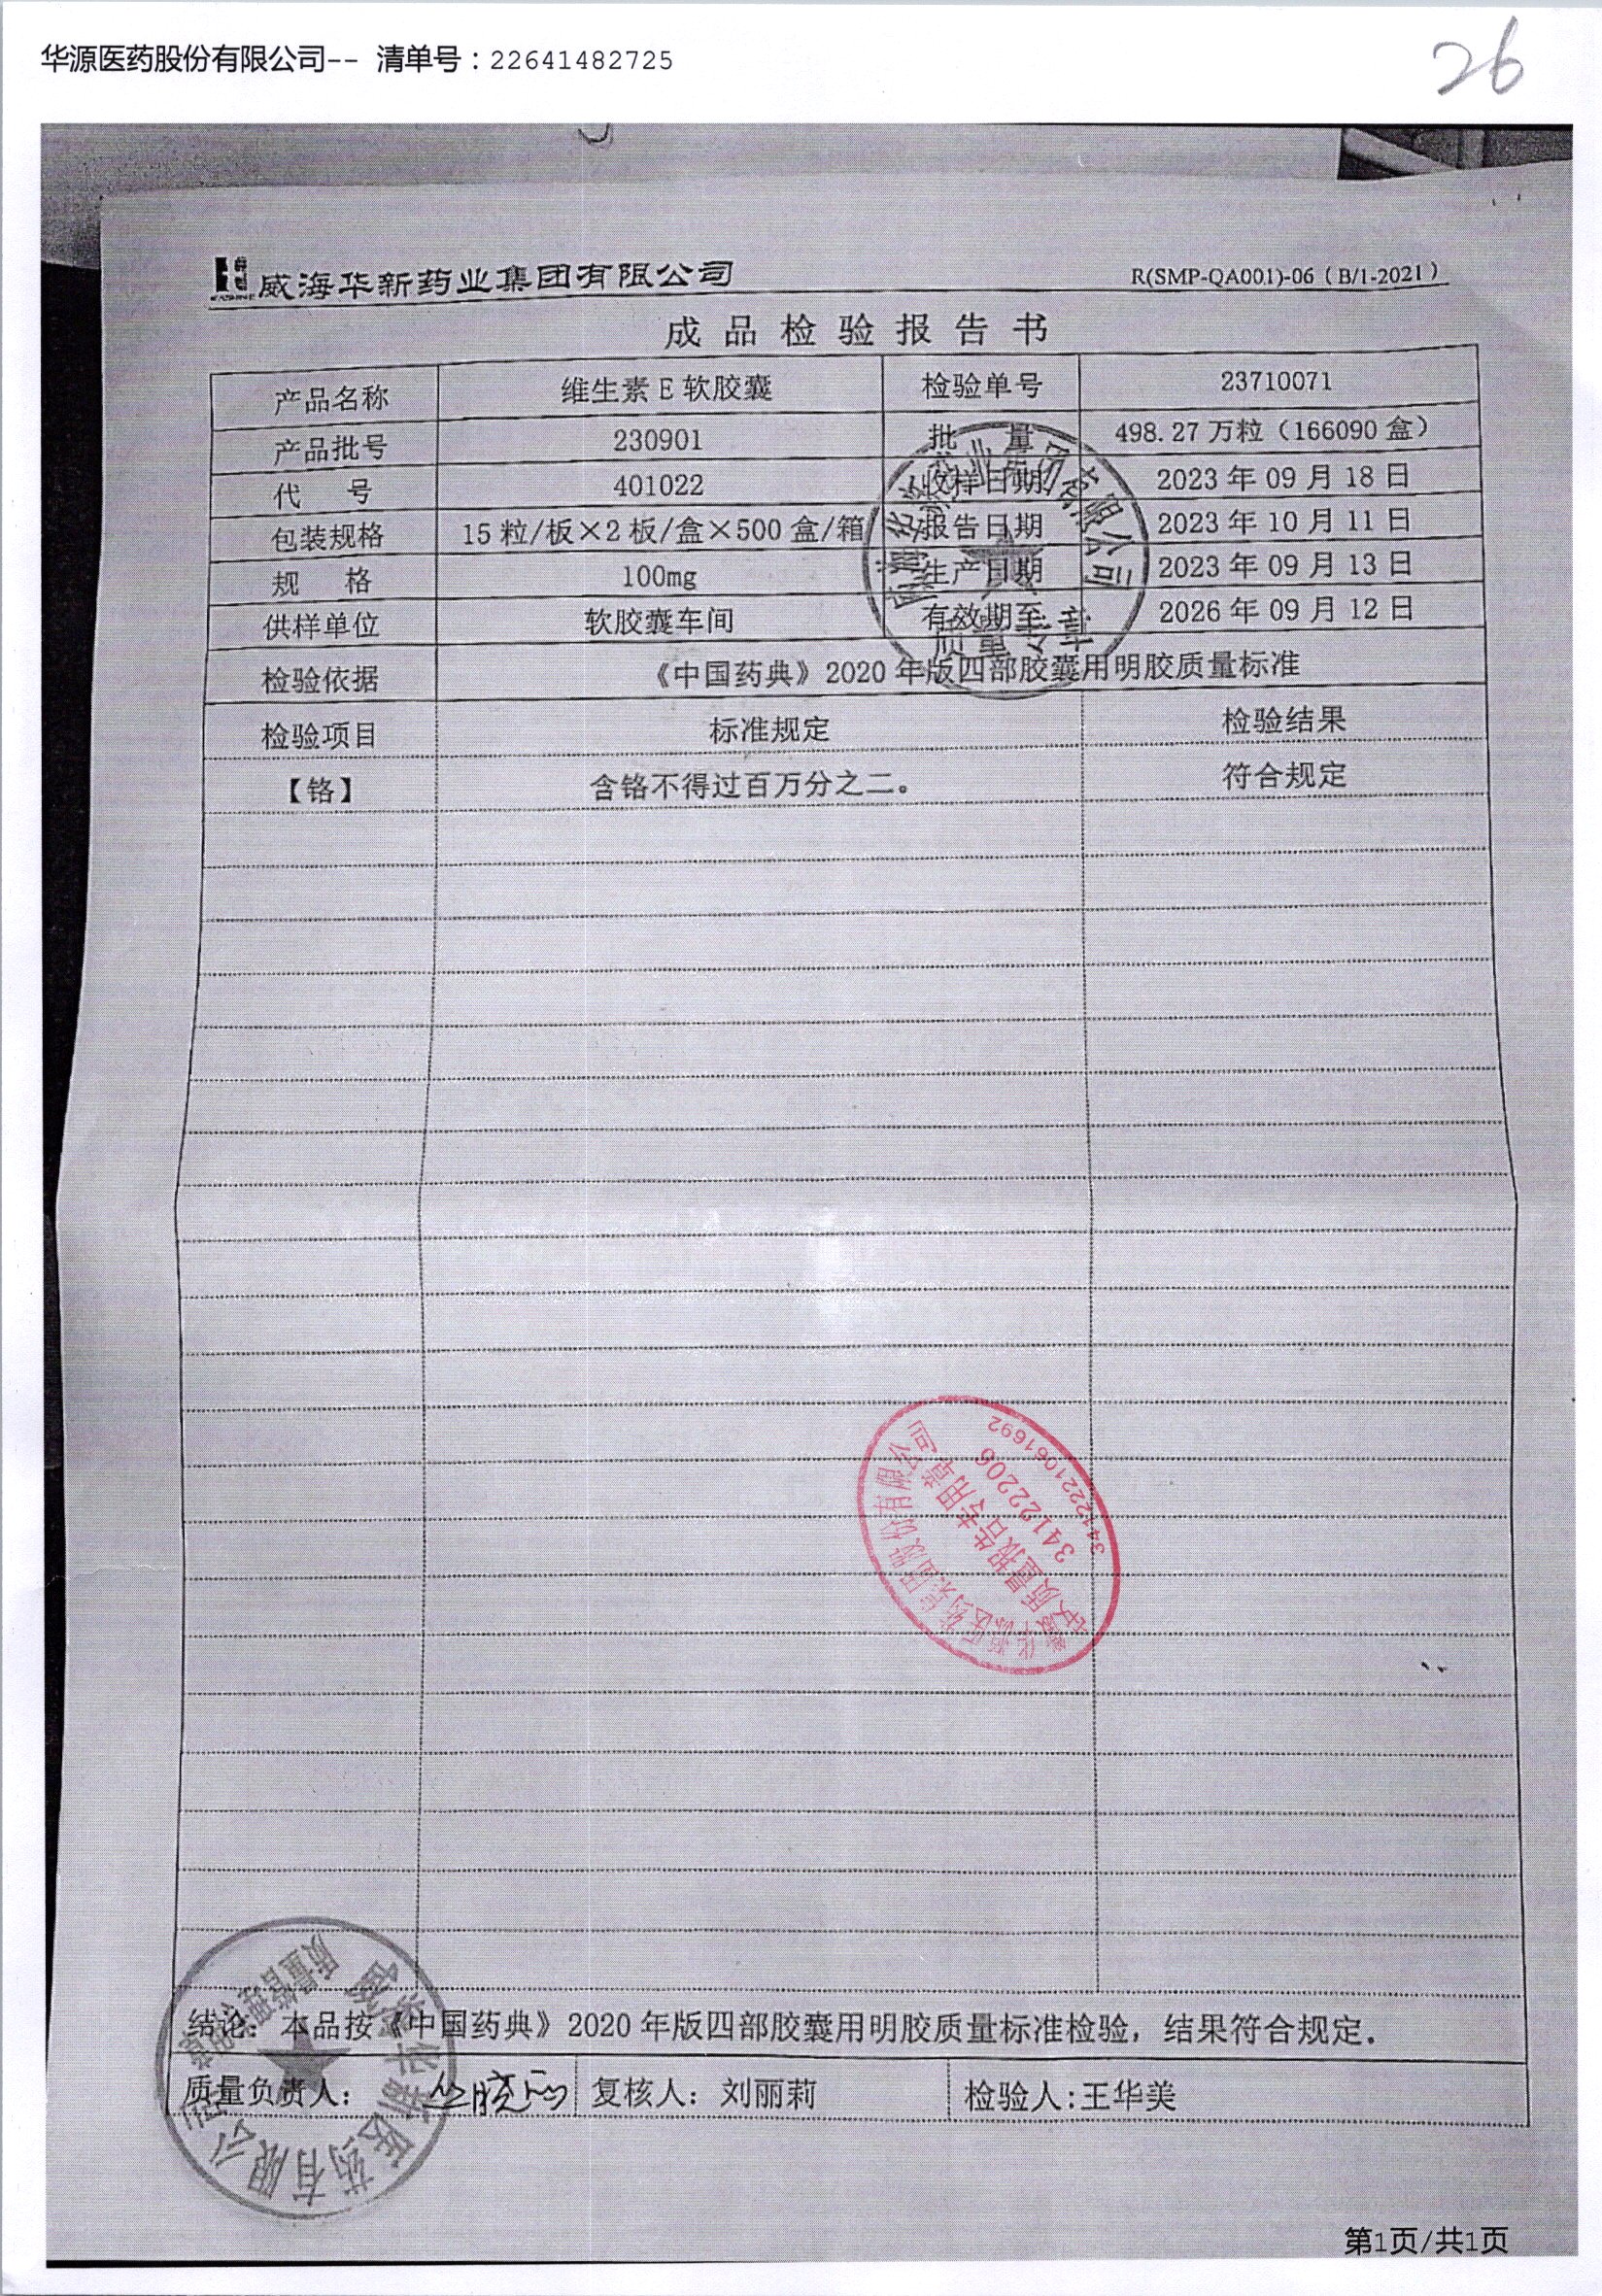 华源医药股份有限公司-- 清单号：22641482725
26
威海华新药业集团有限公司 R(SMP-QA001)-06（B/1-2021）
成品检验报告书
产品名称 维生素E软胶囊 检验单号 23710071
产品批号 230901 批 量 498.27万粒（166090盒）
代 号 401022 收样日期 2023年09月18日
包装规格 15粒/板×2板/盒×500盒/箱 报告日期 2023年10月11日
规 格 100mg 生产日期 2023年09月13日
供样单位 软胶囊车间 有效期至 2026年09月12日
检验依据 《中国药典》2020年版四部胶囊用明胶质量标准
检验项目 标准规定 检验结果
【铬】 含铬不得过百万分之二。 符合规定
质量报告专用章
341222206
3412221061692
结论：本品按《中国药典》2020年版四部胶囊用明胶质量标准检验，结果符合规定.
质量负责人： 复核人：刘丽莉 检验人:王华美
威海华新医药有限公司
第1页/共1页